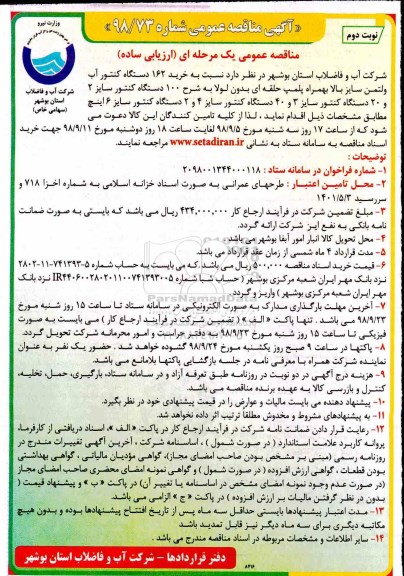 نوبت دوم
« آگهی مناقصه عمومی شماره ۹۸/۷۳ »
وزارت نیرو
شرکت آب و فاضلاب
استان بوشهر
(سهامی خاص)
مناقصه عمومی یک مرحله ای (ارزیابی ساده)
شرکت آب و فاضلاب استان بوشهر در نظر دارد نسبت به خرید ۱۶۲ دستگاه کنتور آب
ولتمن سایز بالا بهمراه پلمپ حلقه ای بدون لولا به شرح ۱۰۰ دستگاه کنتور سایز ۲
و ۲۰ دستگاه کنتور سایز ۳ و ۴۰ دستگاه کنتور سایز ۴ و ۲ دستگاه کنتور سایز ۶ اینچ
مطابق مشخصات ذیل اقدام نماید ، لذا از کلیه تامین کنندگان این کالا دعوت می
شود که از ساعت ۱۷ روز سه شنبه مورخ ۹۸/۹/۵ لغایت ساعت ۱۸ روز دوشنبه مورخ ۹۸/۹/۱۱ جهت خرید
اسناد مناقصه به سامانه ستاد به نشانی www.setadiran.ir مراجعه نمایند.
توضیحات :
۱- شماره فراخوان در سامانه ستاد : ۲۰۹۸۰۰۱۳۴۴۰۰۰۱۱۸
۲- محل تامین اعتبار : طرحهای عمرانی به صورت اسناد خزانه اسلامی به شماره اخزا ۷۱۸ و
سررسید ۱۴۰۱/۵/۳
۳- مبلغ تضمین شرکت در فرآیند ارجاع کار ۴۳۴,۰۰۰,۰۰۰ ریال می باشد که بایستی به صورت ضمانت
نامه بانکی به نفع این شرکت ارائه گردد.
۴- محل تحویل کالا انبار امور آبفا بوشهر می باشد.
۵- مدت قرارداد ۴ ماه شمسی از زمان عقد قرارداد می باشد.
۶- قیمت خرید اسناد مناقصه ۵۰۰,۰۰۰ ریال می باشد.که می بایست به حساب شماره ۵-۷۴۱۳۹۳-۱۱-۲۸۰۲
نزد بانک مهر ایران شعبه مرکزی بوشهر ( حساب شبا شماره IR۴۴۰۶۰۰۲۸۰۲۰۱۱۰۰۷۴۱۳۹۳۰۰۵ نزد بانک
مهر ایران شعبه مرکزی بوشهر ) واریز و گردد.
۷- آخرین مهلت بارگذاری مدارک به صورت الکترونیکی در سامانه ستاد تا ساعت ۱۵ روز شنبه مورخ
۹۸/۹/۲۳ می باشد . تنها پاکت « الف » ( تضمین شرکت در فرآیند ارجاع کار ) می بایست به صورت
فیزیکی تا ساعت ۱۵ روز شنبه مورخ ۹۸/۹/۲۳ به دفتر حراست و امور محرمانه شرکت تحویل گردد.
۸- پاکتها در ساعت ۹ صبح روز یکشنبه مورخ ۹۸/۹/۲۴ گشوده خواهد شد. حضور یک نفر به عنوان
نماینده شرکت همراه با معرفی نامه در جلسه بازگشایی پاکتها بلامانع می باشد.
۹- هزینه درج آگهی در دو نوبت در روزنامه طبق تعرفه آزاد و در سامانه ستاد، بارگیری، حمل، تخلیه،
کنترل و بازرسی کالا به عهده برنده مناقصه می باشد.
۱۰- پیشنهاد دهنده می بایست مالیات و عوارض را در قیمت پیشنهادی خود در نظر بگیرد.
۱۱- به پیشنهادهای مشروط و مخدوش مطلقا ترتیب اثر داده نخواهد شد.
۱۲- رعایت قرار دادن ضمانت نامه شرکت در فرآیند ارجاع کار در پاکت « الف »، اسناد دریافتی از کارفرما،
پروانه کاربرد علامت استاندارد ( در صورت شمول ) ، اساسنامه شرکت ، آخرین آگهی تغییرات مندرج در
روزنامه رسمی (مبنی بر مشخص بودن صاحب امضای مجاز)، گواهی مؤدیان مالیاتی ، گواهی بهداشتی
بودن قطعات ، گواهی ارزش افزوده ( در صورت شمول ) و گواهی نمونه امضای محضری صاحب امضای مجاز
(در صورت عدم وجود نمونه امضای مشخص در اساسنامه یا تغییر آن) در پاکت « ب » و پیشنهاد قیمت (
بدون در نظر گرفتن مالیات بر ارزش افزوده ) در پاکت « ج » الزامی می باشد.
۱۳- مدت اعتبار پیشنهادها بایستی حداقل سه ماه پس از تاریخ افتتاح پیشنهادها بوده و بدون هیچ
مکاتبه دیگری برای سه ماه دیگر نیز قابل تمدید باشد
۱۴- سایر اطلاعات و مشخصات مربوطه در اسناد مناقصه مندرج می باشد .
۸۴۱۶
دفتر قراردادها – شرکت آب و فاضلاب استان بوشهر